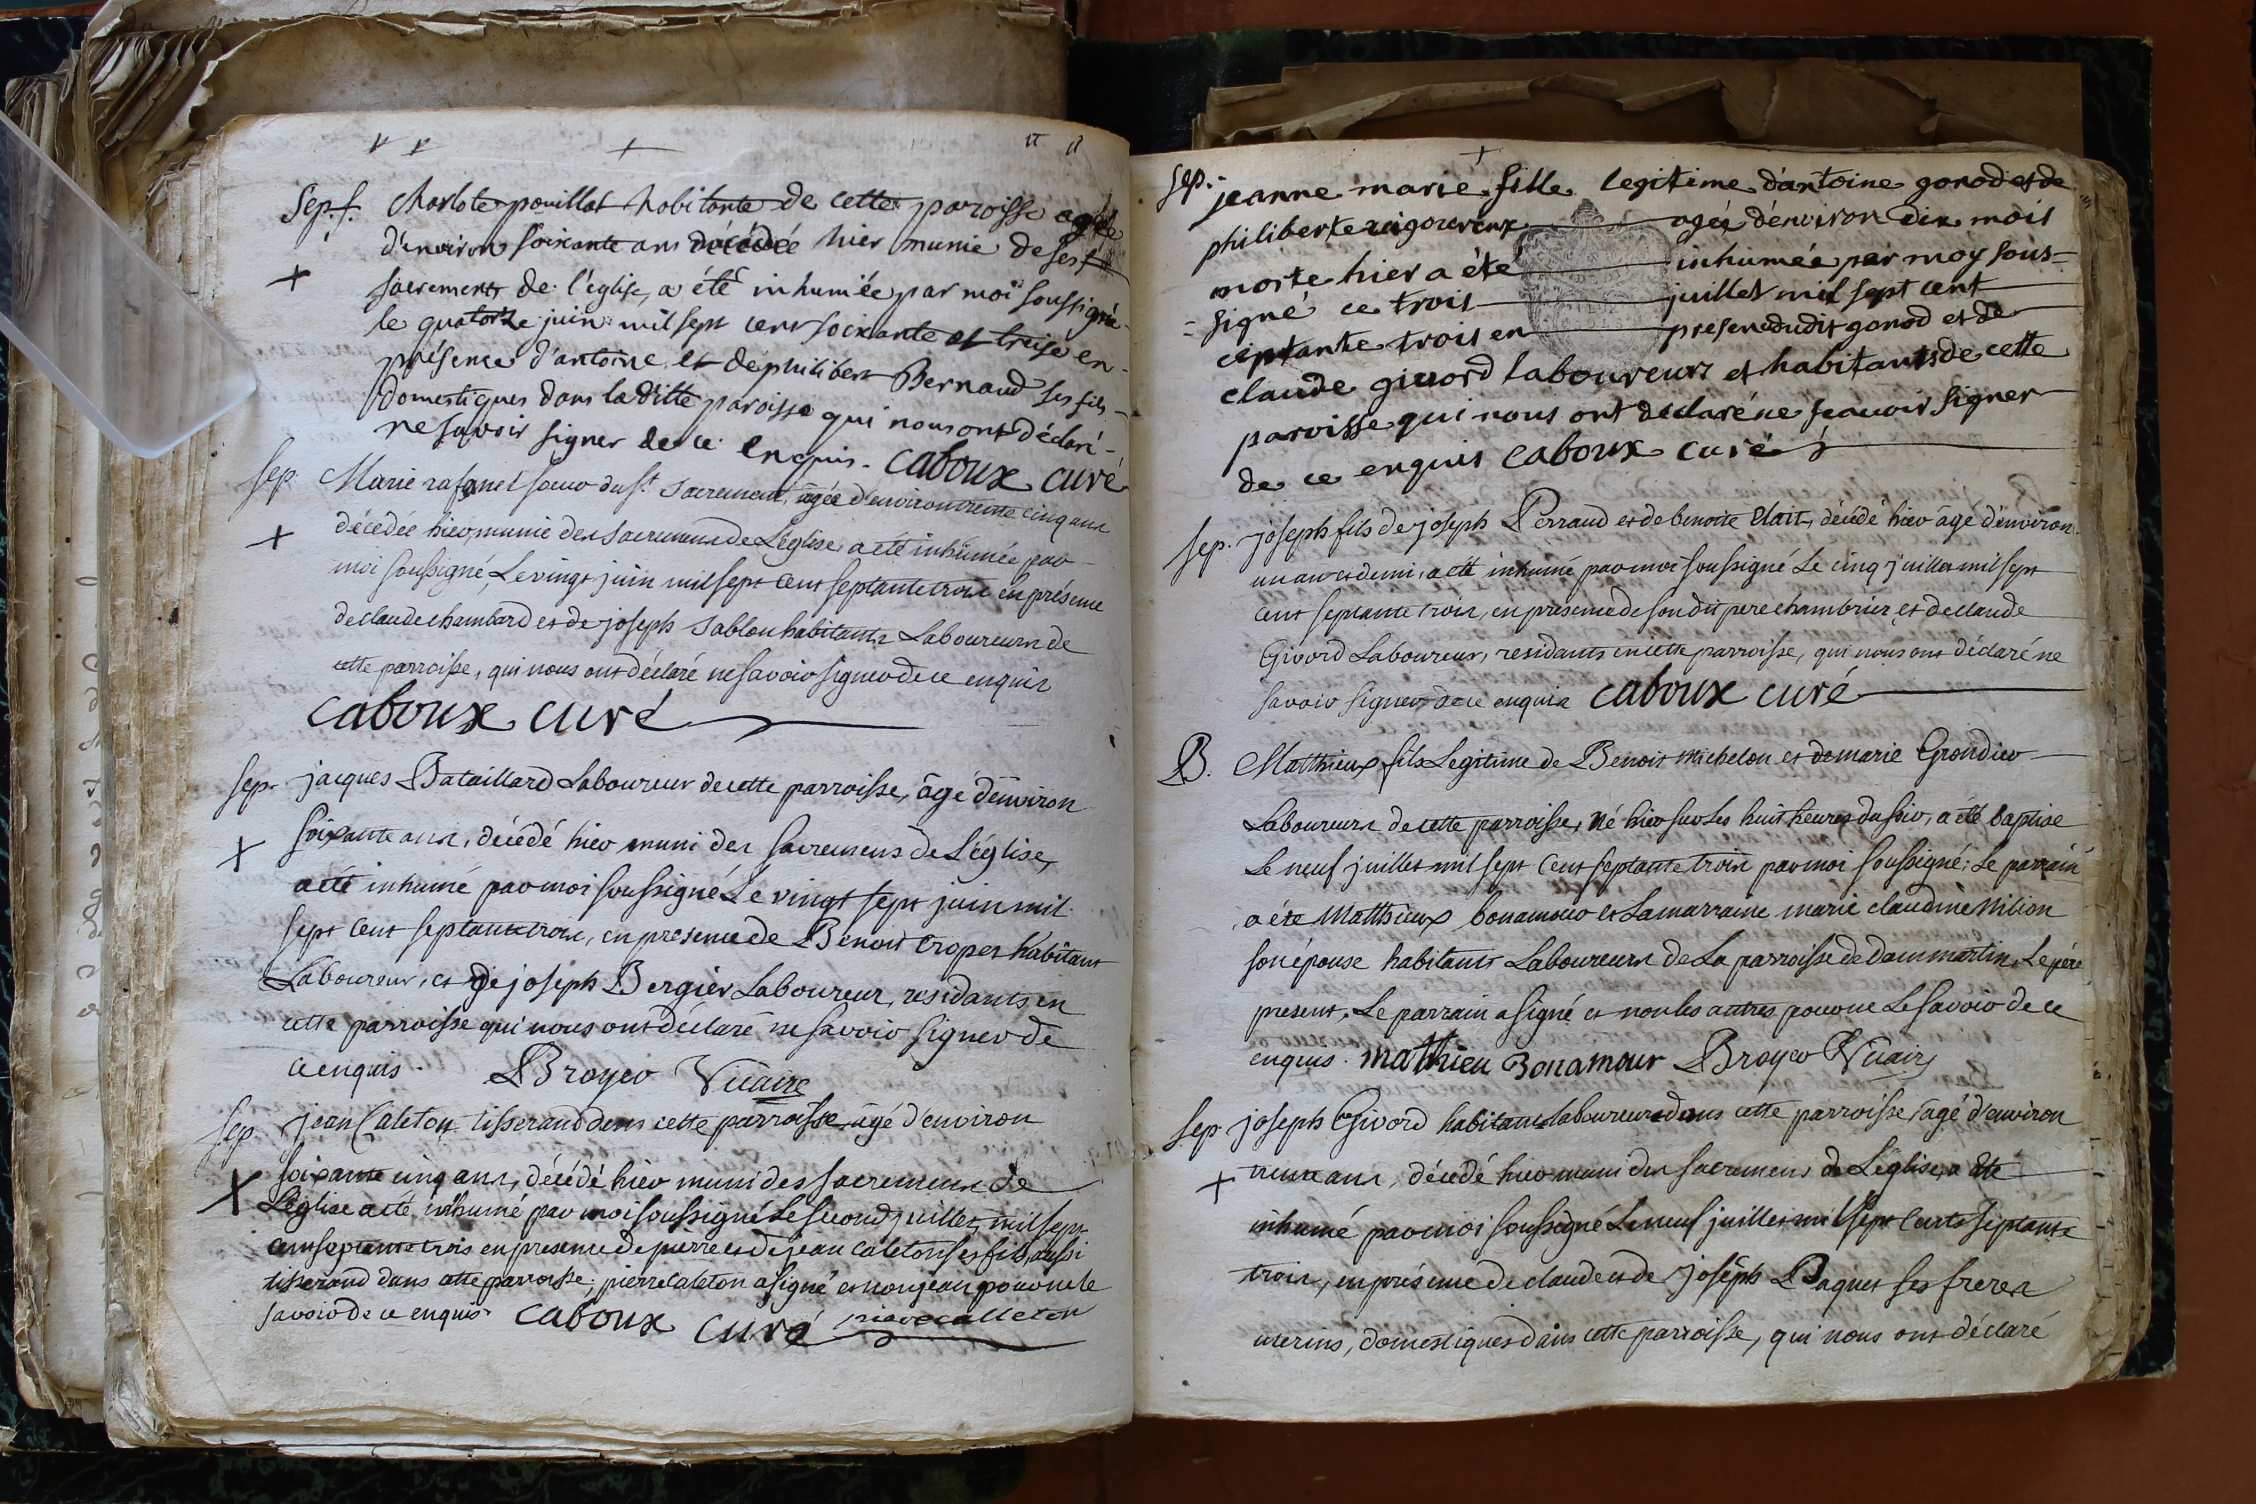 Sep.f. Charlote pouillat habitante de cette paroisse agée
d'environ soixante ans décédée hier munie de ses
sacrements de l'église, a été inhumée par moi soussigné
le quatorze juin mil sept cent soixante et treize en
présence d'antoine et de philibert Bernaud ses fils
domestiques dans la ditte paroisse qui nous ont déclaré
ne savoir signer de ce enquis. caboux curé
sep. Marie rafanel soeur du St. Sacrement, agée d'environ trente cinq ans
décédée hier, munie des sacremens de L'église, a été inhumée par
moi soussigné, Le vingt juin mil sept cent septante trois en présence
de claude chambard et de joseph Sablon habitants Laboureurs de
cette parroisse, qui nous ont déclaré ne savoir signer de ce enquis
caboux curé
sep. jacques Bataillard Laboureur de cette parroisse, âgé d'environ
soixante ans, décédé hier muni des sacremens de L'église,
a été inhumé par moi soussigné Le vingt sept juin mil
sept cent septante trois, en presence de Benoit croper habitant
Laboureur, et de joseph Bergier Laboureur, residants en
cette parroisse qui nous ont déclaré ne savoir signer de
ce enquis. Broyer Vicaire
sep. jean Caleton tisserand dans cette parroisse, agé d'environ
soixante cinq ans, décédé hier muni des sacremens de
L'église a été inhumé par moi soussigné Le second juillet mil sept
cent septante trois en presence de pierre et de jean caleton ses fils, aussi
tisserand dans cette parroisse; pierre caleton a signé et non jean pour ne le
savoir de ce enquis. caboux curé pierre calleton
sep. jeanne marie fille legitime d'antoine gonod et de
philiberte rigoureux agée d'environ dix mois
morte hier a été inhumée par moy sous=
=signé ce trois juillet mil sept cent
ceptante trois en presence dudit gonod et de
claude givord laboureurs et habitants de cette
paroisse qui nous ont déclaré ne scavoir signer
de ce enquis caboux curé
sep. joseph fils de joseph Perraud et de benoite Clait, décédé hier âgé d'environ
un an et demi, a été inhumé par moi soussigné Le cinq juillet mil sept
cent septante trois, en présence de son dit pere chambrier et de claude
Givord Laboureur, residants en cette parroisse, qui nous ont déclaré ne
savoir signer de ce enquis caboux curé
B. Matthieux fils Legitime de Benoit Michelon et de marie Grondier
Laboureurs de cette parroisse, né hier sur les huit heures du soir, a été baptisé
Le neuf juillet mil sept cent septante trois par moi soussigné; Le parrain
a été Matthieux bonamour et La marraine marie claudine Milion
son épouse habitants Laboureurs de La parroisse de Dammartin, Le père
present. Le parrain a signé et non les autres pour ne Le savoir de ce
enquis. mathieu Bonamour Broyer Vicaire
sep. joseph Givord habitant laboureur dans cette parroisse, agé d'environ
trente ans, décédé hier muni des sacremens de L'église, a été
inhumé par moi soussigné Le neuf juillet mil sept cents septante
trois, en présence de claude et de joseph Paquet ses freres
uterins, domestiques dans cette parroisse, qui nous ont déclaré